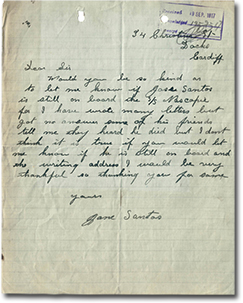 18 SEP 1917
34 Christina St
Docks
Cardiff
Dear Sir
Would you be so kind as
to let me know if Jose Santos
is still on board the S/S Nascopie
for I have wrote many letters but
got no answer some of his friends
tell me they heard he died but I don't
think it is true if you would let
me know if he is still on board and
the writing address I would be very
thankful so thanking you for same
yours
Jane Santos